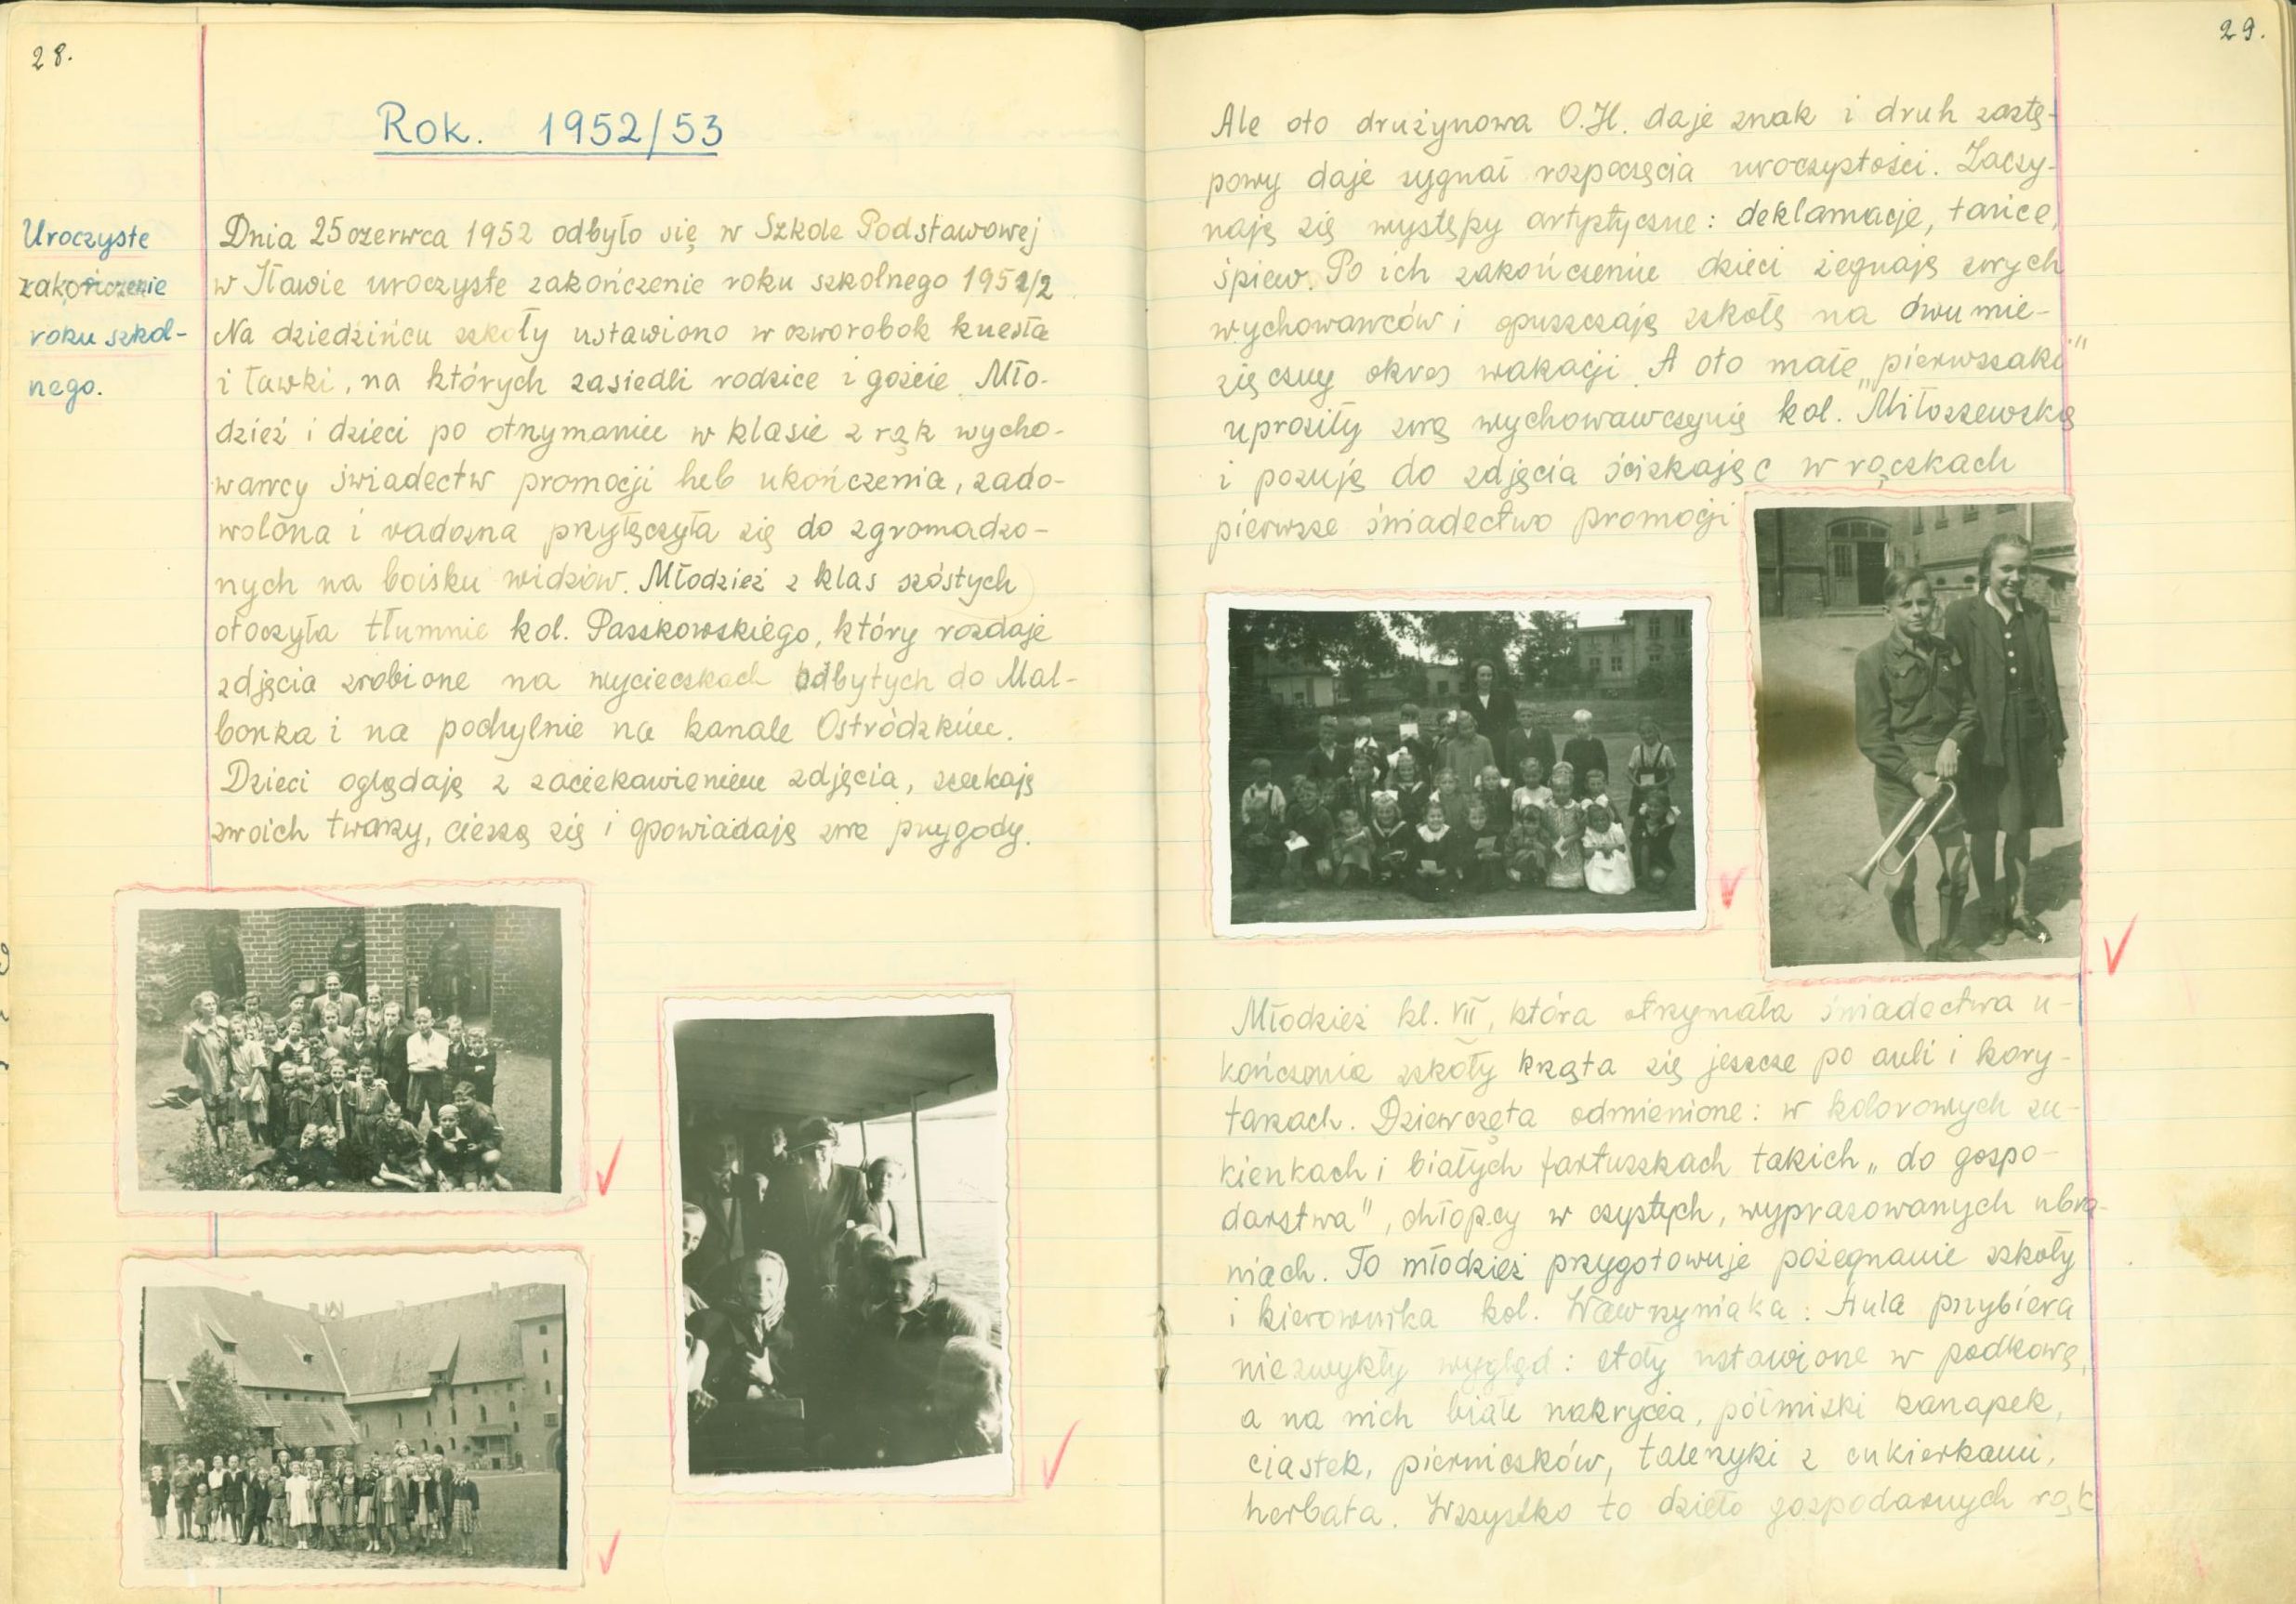 28.
Rok. 1952/53
Uroczyste
zakończenie
roku szkol-
nego.
Dnia 25 czerwca 1952 odbyło się w Szkole Podstawowej
w Iławie uroczyste zakończenie roku szkolnego 1951/2
Na dziedzińcu szkoły ustawiono w czworobok krzesła
i ławki, na których zasiedli rodzice i goście. Mło-
dzież i dzieci po otrzymaniu w klasie z rąk wycho-
wawcy świadectw promocji lub ukończenia, zado-
wolona i radosna przyłączyła się do zgromadzo-
nych na boisku widzów. Młodzież z klas szóstych
otoczyła tłumnie kol. Paszkowskiego, który rozdaje
zdjęcia zrobione na wycieczkach odbytych do Mal-
borka i na pochylnie na kanale Ostródzkim.
Dzieci oglądają z zaciekawieniem zdjęcia, szukają
swoich twarzy, cieszą się i opowiadają swe przygody.
29.
Ale oto drużynowa O.H. daje znak i druh zastę-
powy daje sygnał rozpoczęcia uroczystości. Zaczy-
nają się występy artystyczne: deklamacje, tańce,
śpiew. Po ich zakończeniu dzieci żegnają swych
wychowawców i opuszczają szkołę na dwumie-
sięczny okres wakacji. A oto małe „pierwszaki"
uprosiły swą wychowawczynię kol. Miłoszewską
i pozują do zdjęcia ściskając w rączkach
pierwsze świadectwo promocji
Młodzież kl. VII, która otrzymała świadectwa u-
kończenia szkoły krząta się jeszcze po auli i kory-
tarzach. Dziewczęta odmienione: w kolorowych su-
kienkach i białych fartuszkach takich „do gospo-
darstwa", chłopcy w czystych, wyprasowanych ubra-
niach. To młodzież przygotowuje pożegnanie szkoły
i kierownika kol. Wawrzyniaka: Aula przybiera
niezwykły wygląd: stoły ustawione w podkowę,
a na nich białe nakrycia, półmiski kanapek,
ciastek, pierniczków, talerzyki z cukierkami,
herbata. Wszystko to dzieło gospodarnych rąk